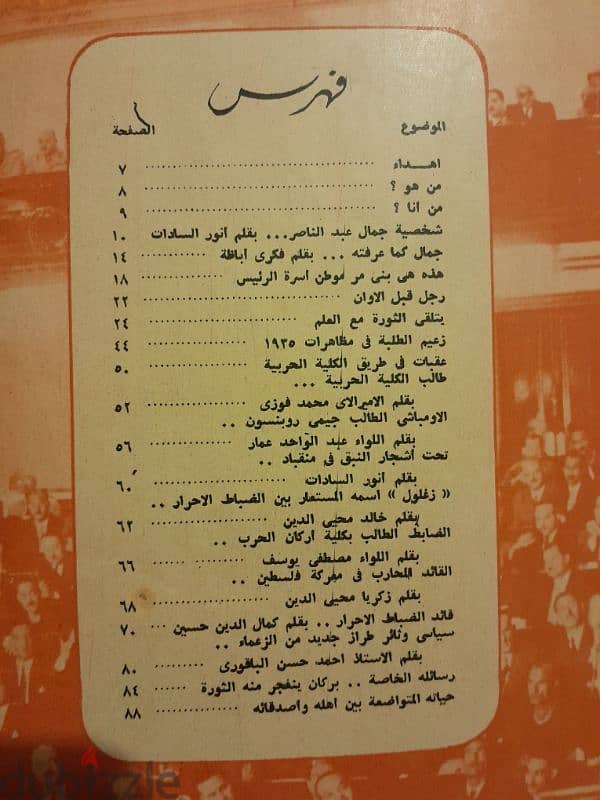 فهرس
الموضوع الصفحة
اهداء ٧
من هو ؟ ٨
من أنا ؟ ٩
شخصية جمال عبد الناصر... بقلم أنور السادات ١٠
جمال كما عرفته ... بقلم فكرى أباظة ١٤
هذه هى بنى مر موطن أسرة الرئيس ١٨
رجل قبل الاوان ٢٢
يتلقى الثورة مع العلم ٢٤
زعيم الطلبة فى مظاهرات ١٩٣٥ ٤٤
عقبات فى طريق الكلية الحربية ٥٠
طالب الكلية الحربية ...
بقلم الاميرالاى محمد فوزى ٥٢
الاومباشى الطالب جيمى روبنسون ..
بقلم اللواء عبد الواحد عمار ٥٦
تحت أشجار النبق فى منقباد ..
بقلم أنور السادات ٦٠
« زغلول » اسمه المستعار بين الضباط الاحرار ..
بقلم خالد محيى الدين ٦٢
الضابط الطالب بكلية أركان الحرب ..
بقلم اللواء مصطفى يوسف ٦٦
القائد المحارب فى معركة فلسطين ..
بقلم زكريا محيى الدين ٦٨
قائد الضباط الاحرار .. بقلم كمال الدين حسين ... ٧٠
سياسى وثائر طراز جديد من الزعماء ..
بقلم الاستاذ احمد حسن الباقورى ٨٠
رسائله الخاصة .. بركان ينفجر منه الثورة ٨٤
حياته المتواضعة بين أهله وأصدقائه ٨٨
dubizzle